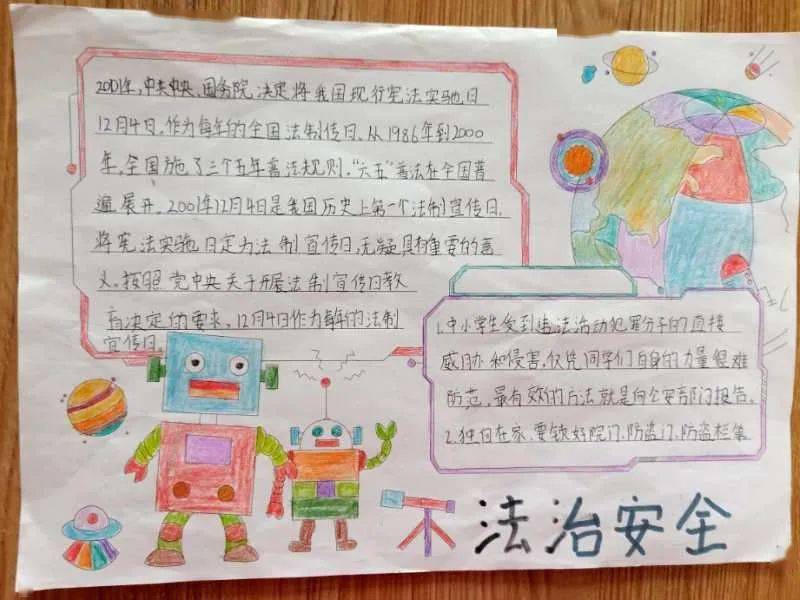 2001年，中共中央、国务院，决定将我国现行宪法实驰日
12月4日，作为每年的全国法制传日、从1986年到2000
年，全国施了三个五年普法规则，“六五”普法在全国普
遍展开。2001年12月4日是我国历史上第一个法制宣传日，
将宪法实驰日定为法制宣传日，无疑具有重要的意
义。按照党中央关于开展法制宣传日教
育决定的要求，12月4日作为每年的法制
宣传日。
1.中小学生受到违法活动犯罪分子的直接
威胁和侵害，仅凭同学们自身的力量很难
防范，最有效的方法就是向公安部门报告。
2.独自在家，要锁好院门、防盗门、防盗栏等
法治安全